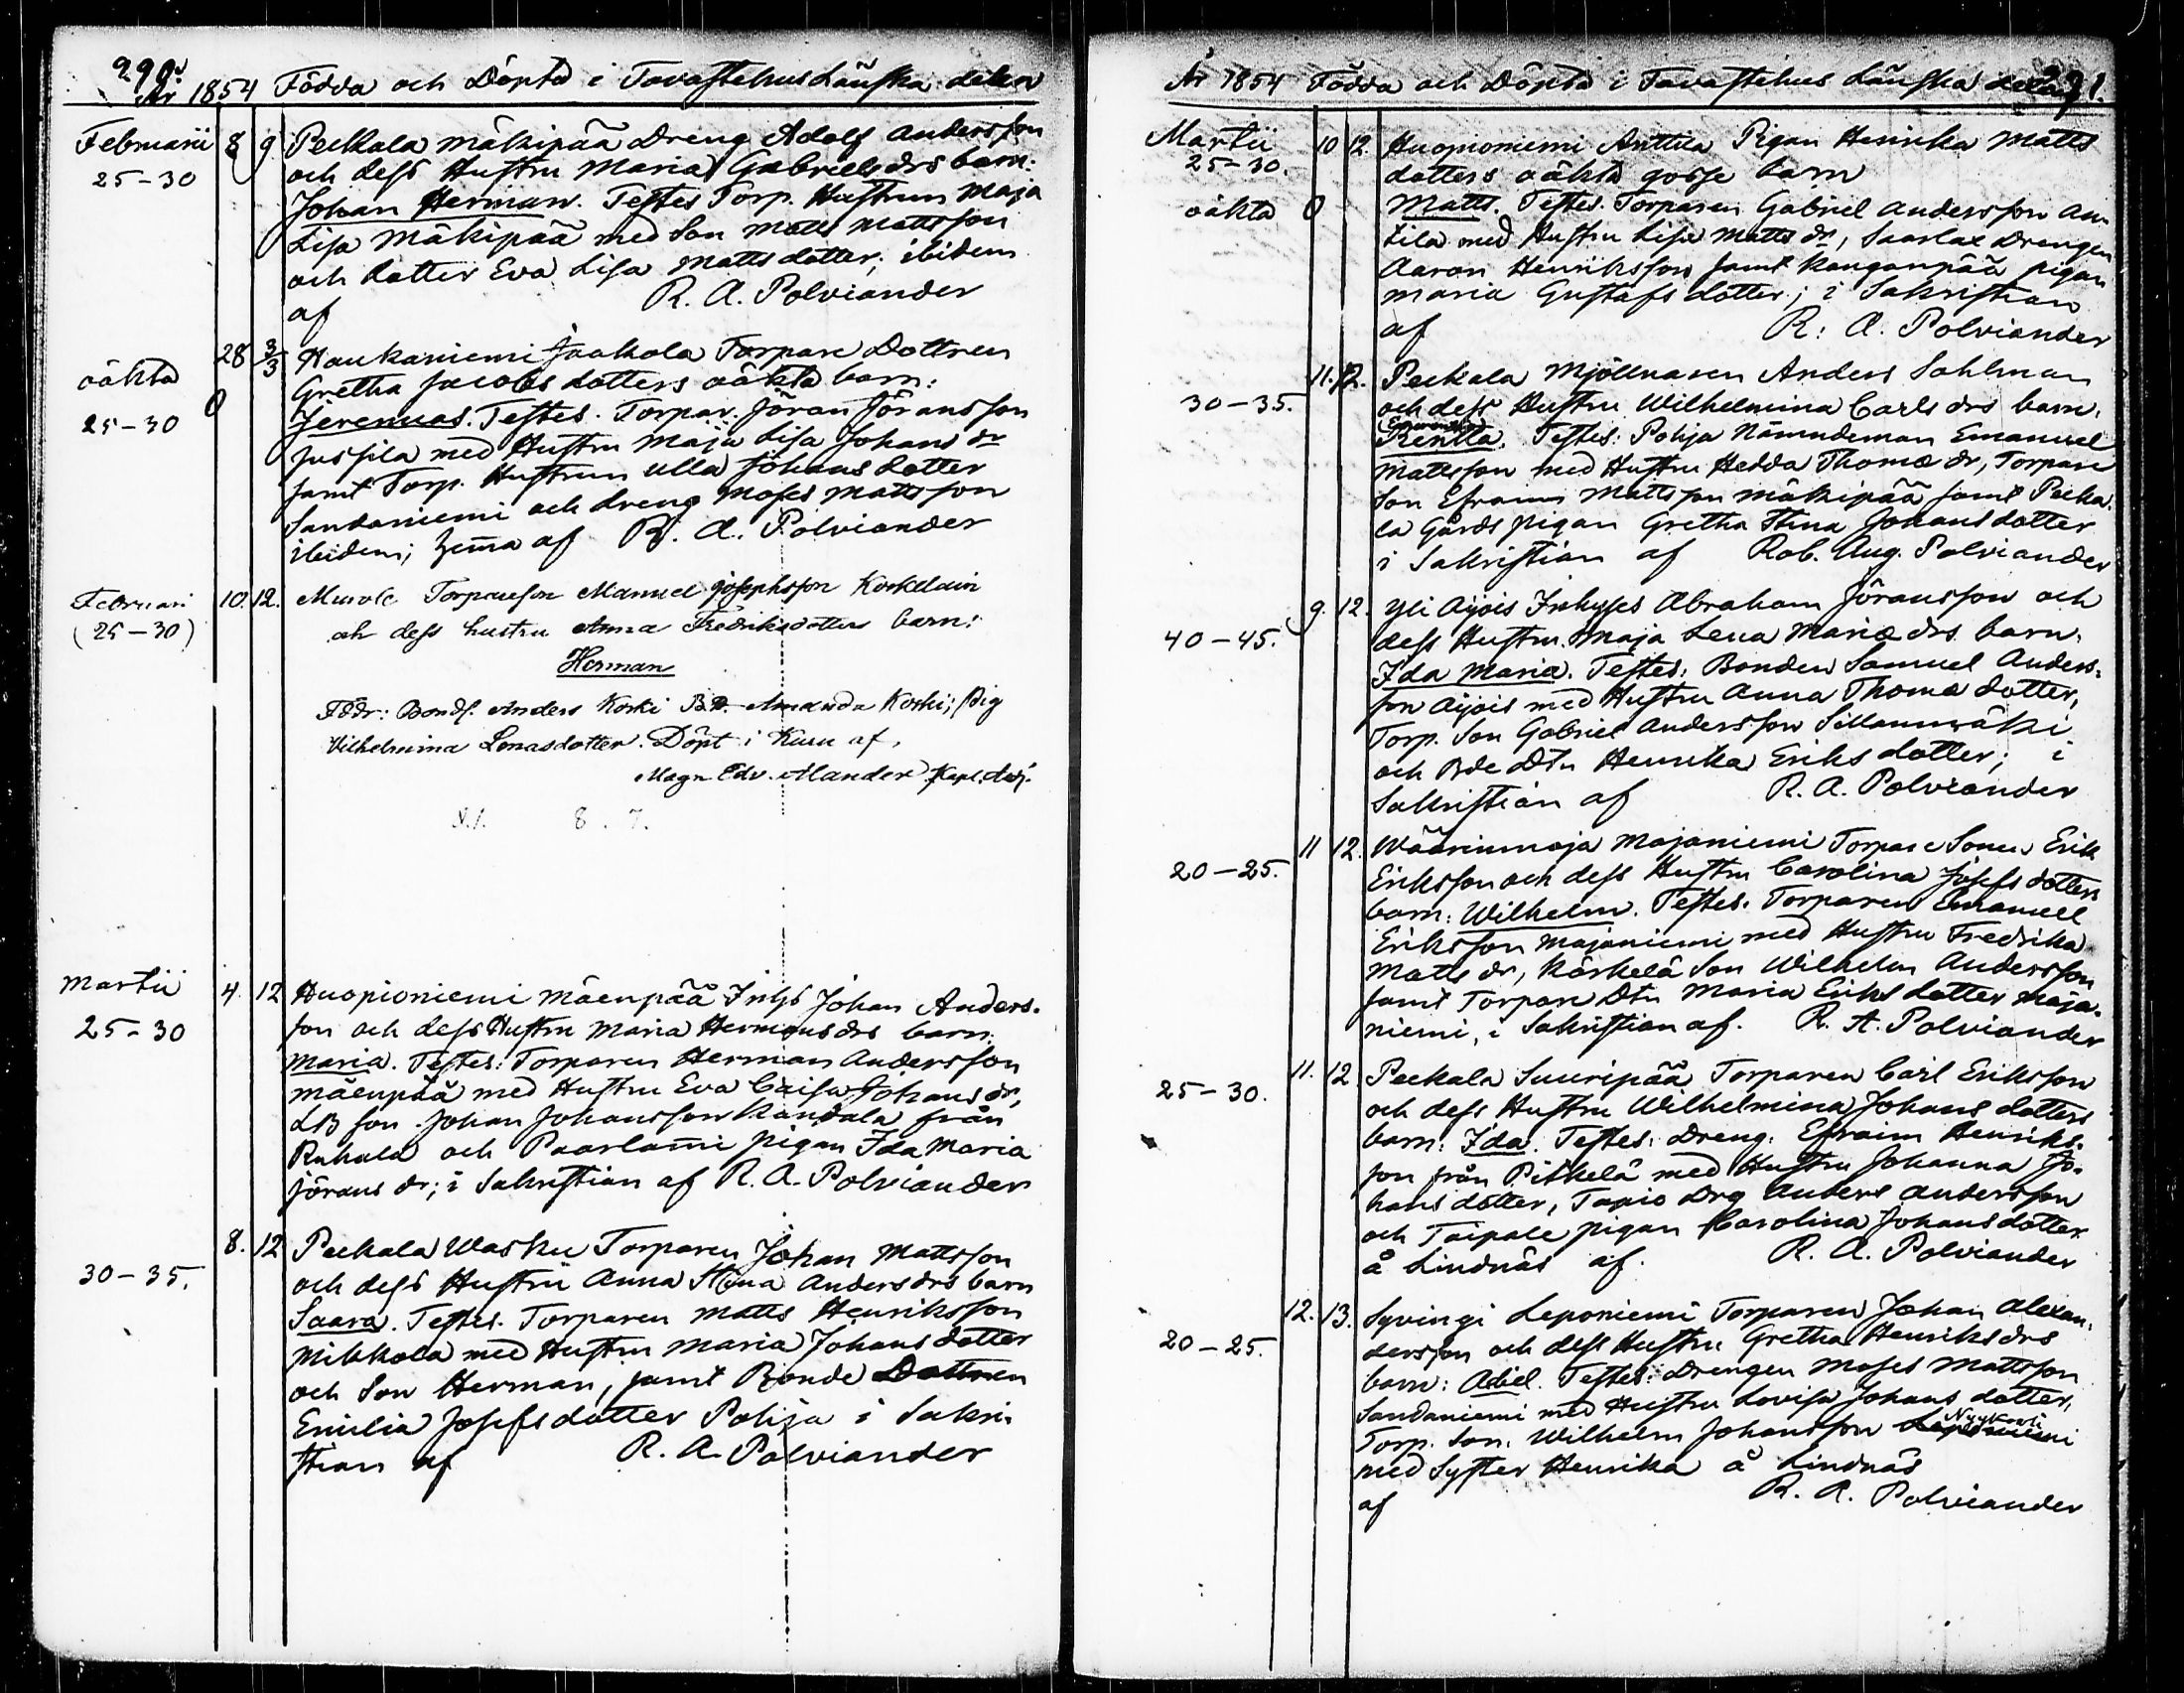 290.
År 1854 Födda och Döpta i Tavastehus Länska delen
Februarii 8 9. Peckala Mäkipää Dreng Adolf Andersson
25-30 och dess Hustru Maria Gabriels drs barn:
Johan Herman. Testes Torp. Hustrun Maja
Lisa Mäkipää med Son Matts Mattsson
och dotter Eva Lisa Matts dotter, ibidem
af R. A. Polviander
28 3/3 Haukaniemi Jaakola Torpare Dottren
oäkta Gretha Jacobs dotters oäkta barn:
25-30 Jeremias. Testes. Torpar. Jöran Jöransson
Jussila med Hustru Maja Lisa Johans dr
samt Torp. Hustrun Ulla Johans dotter
Sandaniemi och dreng Moses Mattsson
ibidem; hema af R. A. Polviander
Februari 10. 12. Murole Torpareson Manuel Josephsson Koskelain
(25-30) och dess hustru Anna Fredriksdotter barn:
Herman
Fddr: Bonds. Anders Koski B.D. Amanda Koski; Pig
Vilhelmina Lonasdotter. Döpt i Kuru af,
Magn. Edv. Alander Kapl. Adj.
N.1. 8. 7.
Martii 4. 12 Huopioniemi Mäenpää Inhys Johan Anders-
25-30 son och dess Hustru Maria Hermans drs barn:
Maria. Testes: Torparen Herman Andersson
Mäenpää med Hustru Eva Caisa Johans dr,
LB son Johan Johansson Kandala från
Ruhala och Paarlami pigan Ida Maria
Jörans dr; i Sakristian af R. A. Polviander
8. 12 Peckala Wasku Torparen Johan Mattsson
30-35. och dess Hustru Anna Stina Anders drs barn
Saara. Testes. Torparen Matts Henriksson
Mikkola med Hustru Maria Johans dotter
och Son Herman, samt Bonde Dottren
Emilia Josefs dotter Pohja i Sakri-
stian af R. A. Polviander
År 1854 Födda och Döpta i Tavastehus Länska delen 291.
Martii 10 12. Huopioniemi Anttila Pigan Henrika Matts
25-30. dotters oäkta gosse barn
oäkta Matts. Testes. Torparen Gabriel Andersson An-
tila med Hustru Lisa Matts dr, Saarlax Drengen
Aaron Henriksson samt Kanganpää pigan
Maria Gustafs dotter; i Sakristian
af R. A. Polviander
11. 12. Peckala Mjölnaren Anders Sahlman
30-35. och dess Hustru Wilhelmina Carls drs barn.
Testes: Pohja Nämndeman Emanuel
Mattsson med Hustru Hedda Thomæ dr, Torpare
Son Efraim Mattsson Mäkipää samt Pecka-
la Gårds pigan Gretha Stina Johans dotter
i Sakristian af Rob. Aug. Polviander
9. 12. Yli Aijois Inhyses Abraham Jöransson och
40-45. dess Hustru Maja Lena Mariæ drs barn.
Ida Maria. Testes: Bonden Samuel Anders-
son Aijois med Hustru Anna Thomæ dotter,
Torp. Son Gabriel Andersson Sillanmäki
och Bde Dtr Henrika Eriks dotter; i
Sakristian af R. A. Polviander
11 12. Wäärinmaja Majaniemi Torpare Sonen Erik
20-25. Eriksson och dess Hustru Carolina Josefs dotters
barn: Wilhelm. Testes. Torparen Emanuel
Eriksson Majaniemi med Hustru Fredrika
Matts dr, Kärkelä Son Wilhelm Andersson
samt Torpare Dtr Maria Eriks dotter Maja-
niemi, i Sakristian af. R. A. Polviander
11. 12 Peckala Suuripää Torparen Carl Eriksson
25-30. och dess Hustru Wilhelmina Johans dotters
barn: Ida. Testes: Dreng. Efraim Henriks-
son från Pihkelä med Hustru Johanna Jo-
hans dotter, Tapio Drg Anders Andersson
och Taipale pigan Carolina Johans dotter
å Lindnäs af. R. A. Polviander
12. 13. Syvingi Leponiemi Torparen Johan Alexan-
20-25. dersson och dess Hustru Gretha Henriks drs
barn: Abiel. Testes: Drengen Moses Mattsson
Sandaniemi med Hustru Lovisa Johans dotter,
Torp. Son. Wilhelm Johansson Leponiemi
med Syster Henrika å Lindnäs
af R. A. Polviander